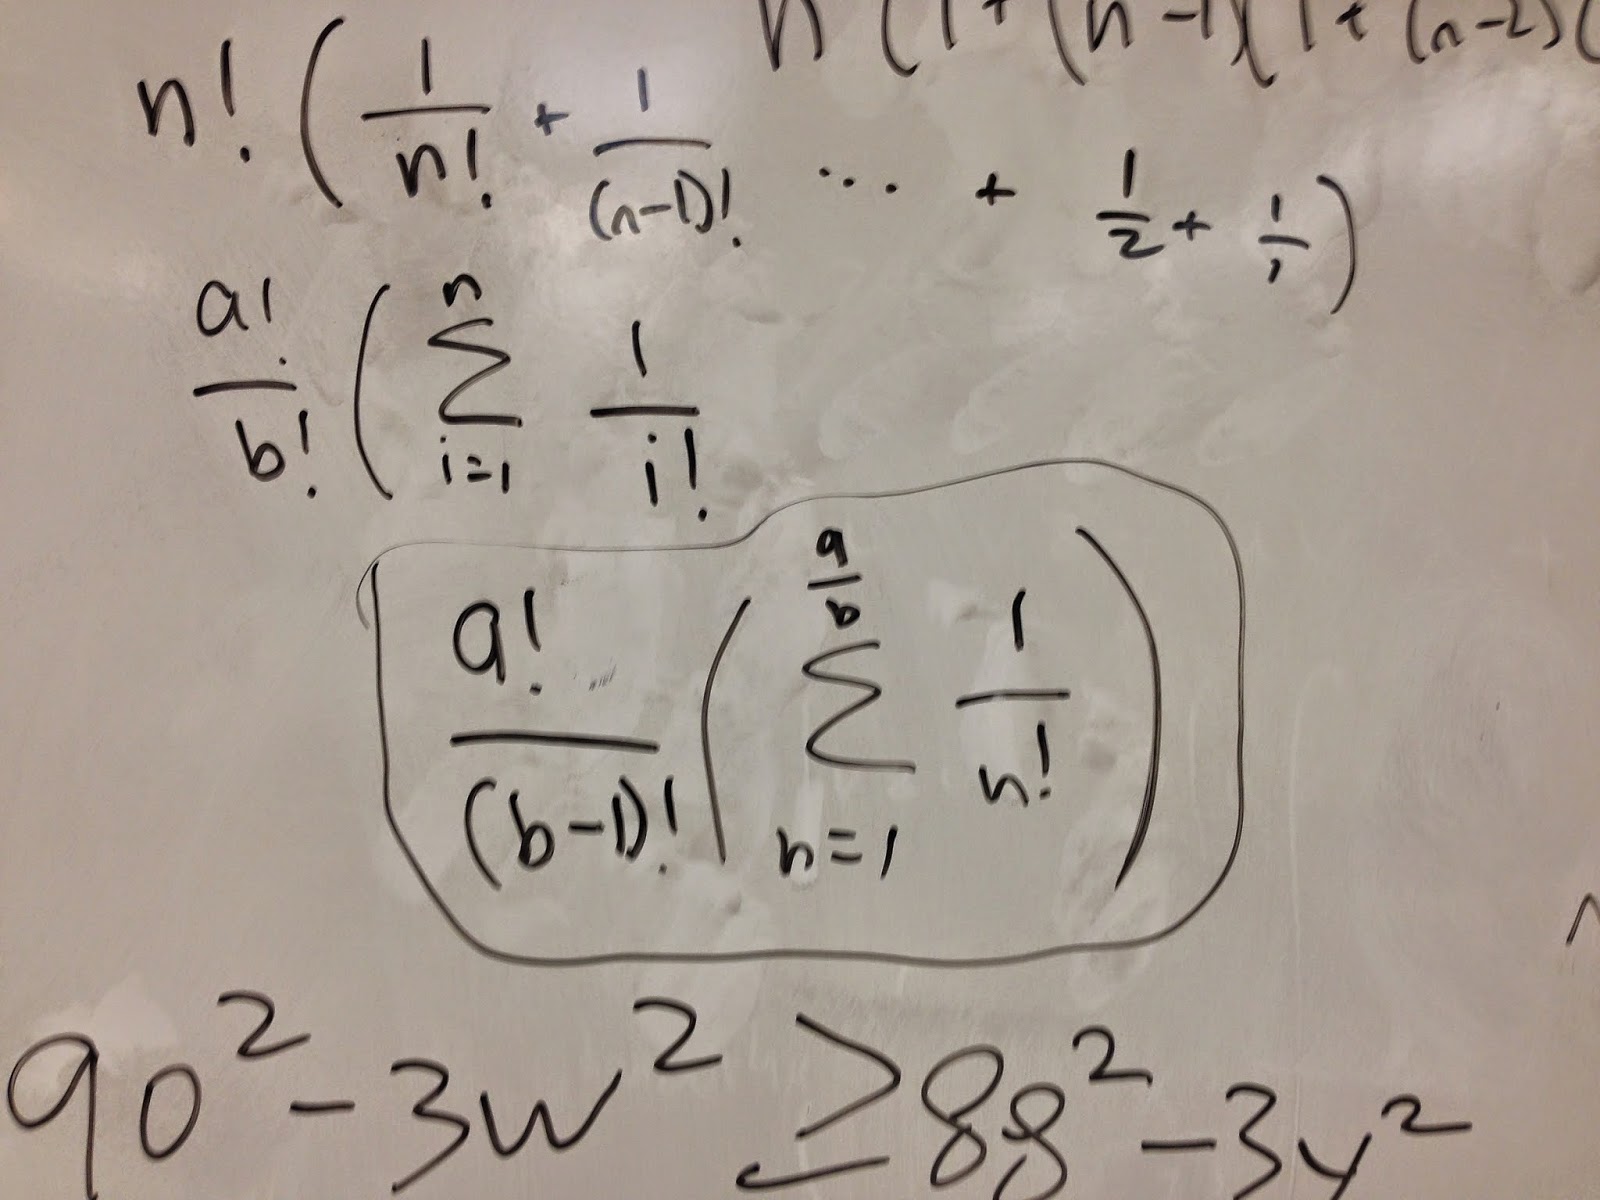 n(1+(n-1)(1+(n-2)(
n! ( 1/n! + 1/(n-1)! ... + 1/2 + 1/1 )
a!/b! ( Σ_{i=1}^{n} 1/i!
a!/(b-1)! ( Σ_{n=1}^{a/b} 1/n! )
9o² - 3w² ≥ 88² - 3y²